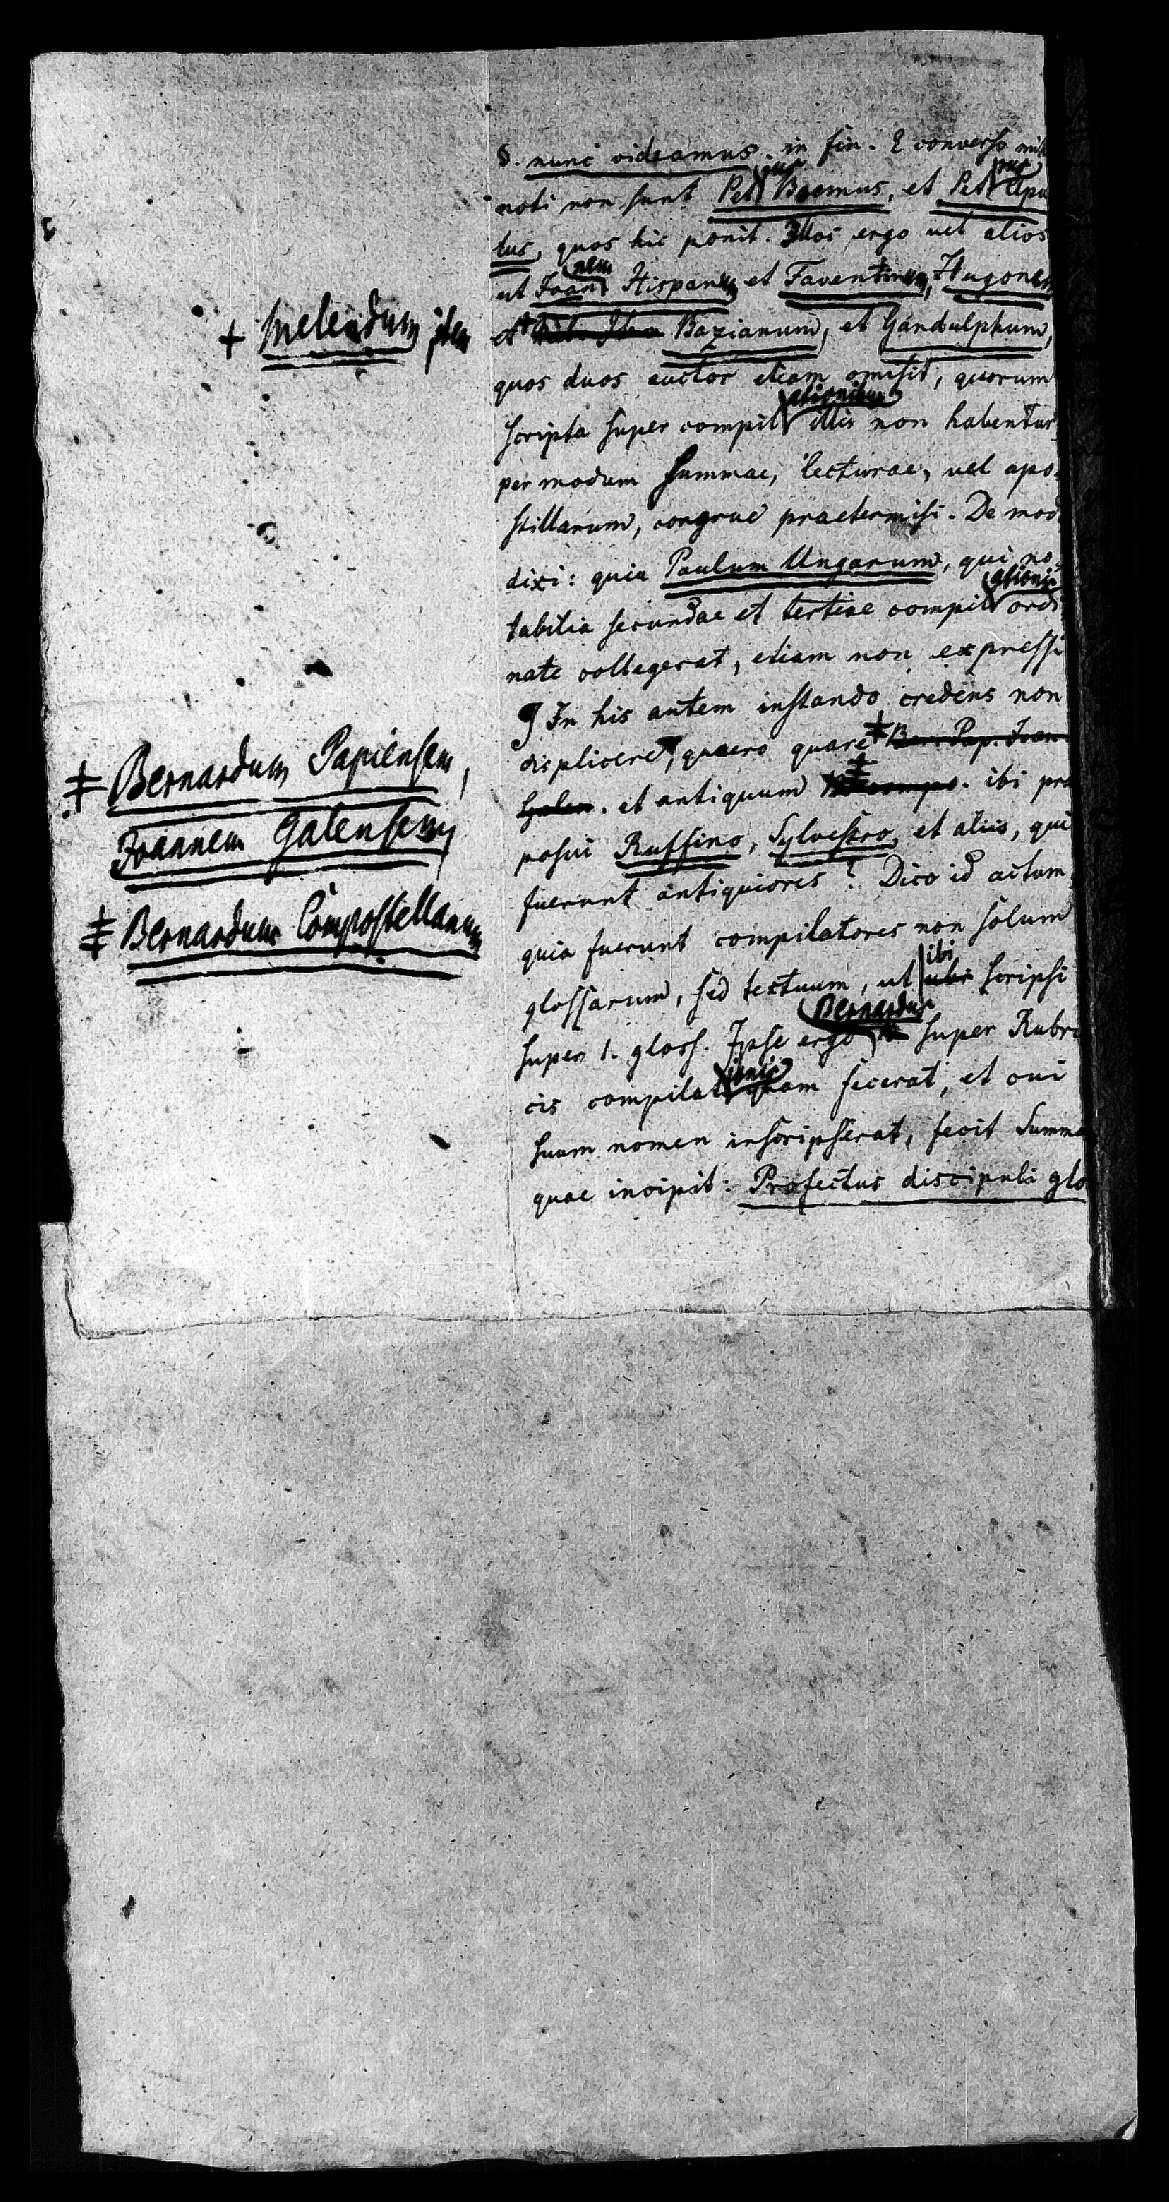 §. nunc videamus. in fin. E converso mihi
noti non sunt Petrus Boemus, et Petrus Apu
lus, quos hic ponit. Illos ergo vel alios
ut Joannem Hispanum et Faventinum, Hugonem
+ Melendum item
et Bazianum, et Gandulphum,
quos duos auctor etiam omisit, quorum
scripta super compilationibus illis non habentur
per modum summae, lecturae, vel apo-
stillarum, congrue praetermisi. De mod
dixi: quia Paulum Ungarum, qui no-
tabilia secundae et tertiae compilationis ordi
nate collegerat, etiam non expressi
¶ In his autem instando credens non
displicere, quaero quare ‡ Ber. Pap. Joan
‡ Bernardum Papiensem,
Joannem Galensem
Galen. et antiquum compo. ibi prae
posui Ruffino, Sylvestro, et aliis, qui
fuerunt antiquiores? Dico id actum,
‡ Bernardum Compostellanum
quia fuerunt compilatores non solum
glossarum, sed textuum, ut ibi ubi scripsi
super 1. gloss. Ipse ergo Bernardus super Rubri
cis compilationis quam fecerat, et cui
suum nomen inscripserat, fecit Summa
quae incipit: Profectus discipuli glo